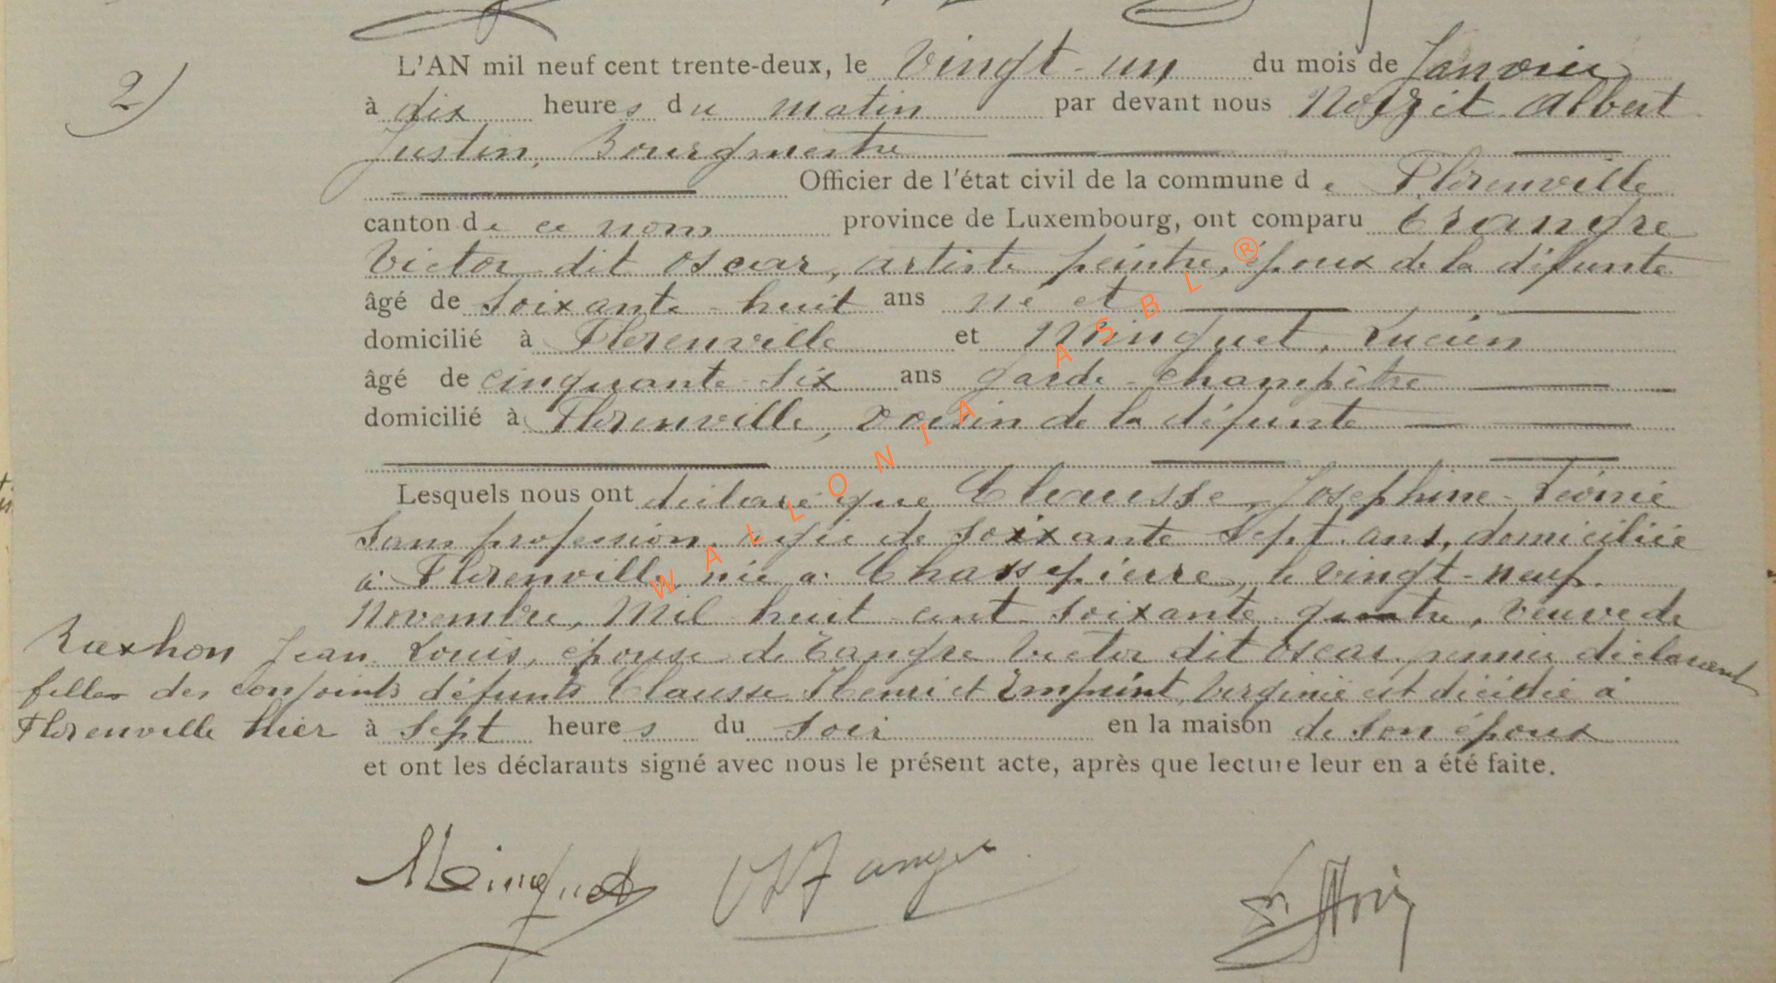 2)
L'AN mil neuf cent trente-deux, le vingt-un du mois de Janvier
à dix heures du matin par devant nous Noizet Albert
Justin, Bourgmestre
Officier de l'état civil de la commune de Florenville
canton de ce nom province de Luxembourg, ont comparu
Victor dit Oscar, artiste peintre, époux de la défunte
âgé de soixante-huit ans né et
domicilié à Florenville et Minguet, Lucien
âgé de cinquante-six ans garde-champêtre
domicilié à Florenville, voisin de la défunte
Lesquels nous ont déclaré que Clausse, Josephine-Léonie
sans profession, agée de soixante sept ans, domiciliée
à Florenville née à Chassepierre, le vingt-neuf
Novembre, mil huit cent soixante quatre, veuve de
Raxhon Jean Louis, épouse de Tangre Victor dit Oscar premier déclarant
fille des conjoints défunts Clausse Henri et Virginie est décédée à
Florenville hier à sept heures du soir en la maison de son époux
et ont les déclarants signé avec nous le présent acte, après que lecture leur en a été faite.
WALLONIA ASBL ®
Minguet